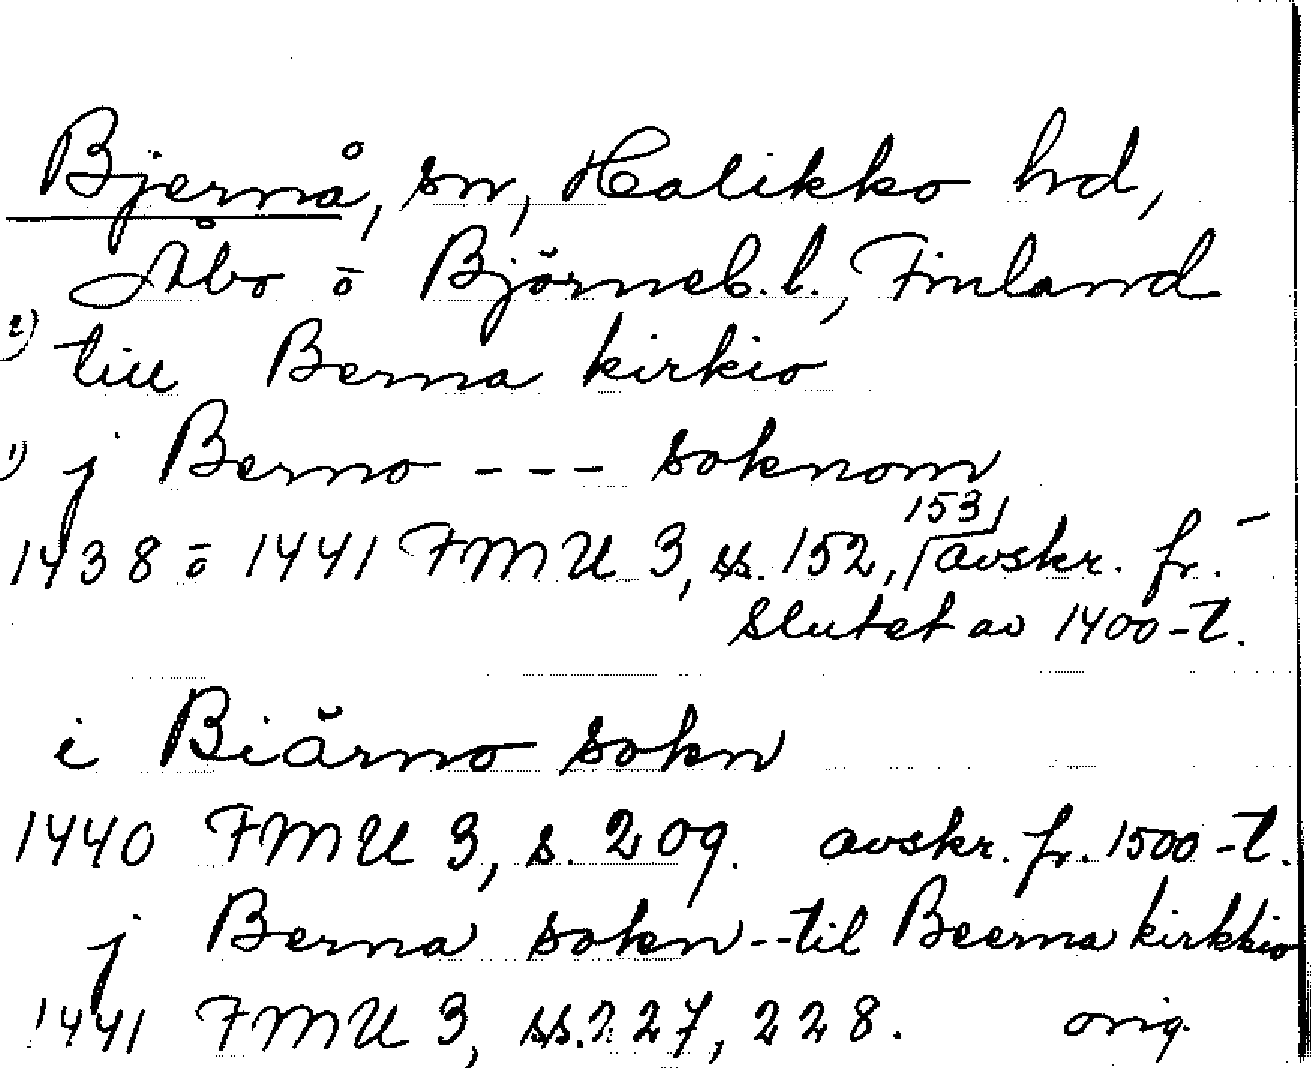 Bjernå, sn, Halikko hd,
Åbo o Björneb. l., Finland
2) till Berna kirkio
1) j Berno --- soknom
1438 o 1441 FMU 3, ss. 152, 153, avskr. fr.
slutet av 1400-t.
i Biärno sokn
1440 FMU 3, s. 209. avskr. fr. 1500-t.
j Berna sokn--til Beerna kirkkio
1441 FMU 3, ss. 227, 228. orig.